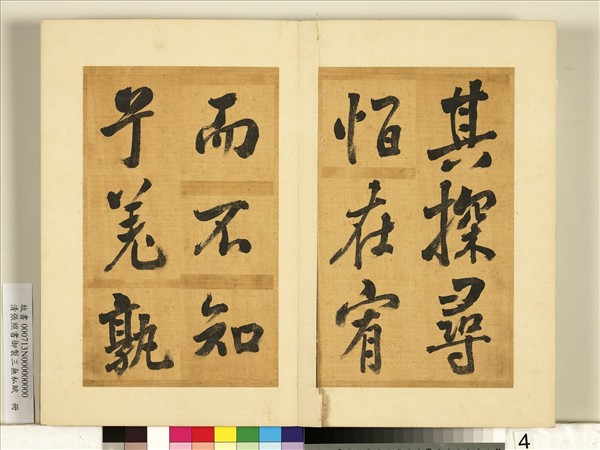 其探尋
恒在宥
而不知
兮羌孰
故書 000713N000000000
清張照書御製三無私賦 冊
4